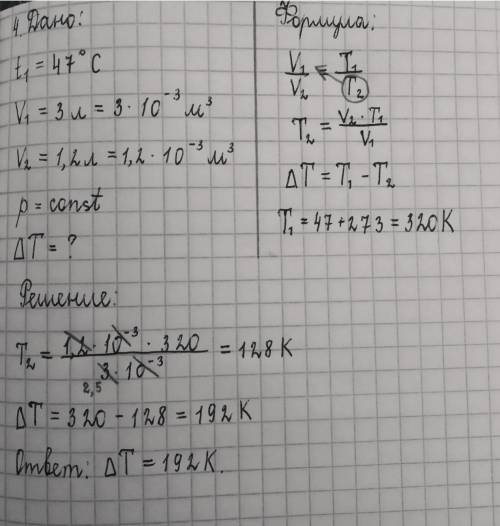 4. Дано:
t₁ = 47°C
V₁ = 3 л = 3 · 10⁻³ м³
V₂ = 1,2 л = 1,2 · 10⁻³ м³
p = const
ΔT = ?
Формула:
V₁/V₂ = T₁/T₂
T₂ = V₂ · T₁/V₁
ΔT = T₁ - T₂
T₁ = 47 + 273 = 320 K
Решение:
T₂ = 1,2 · 10⁻³ · 320/3 · 10⁻³ = 128 K
2,5
ΔT = 320 - 128 = 192 K
Ответ: ΔT = 192 K.